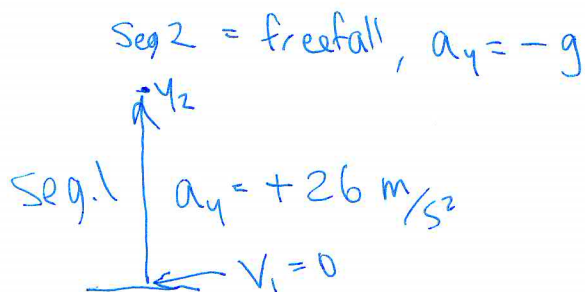 Seg 2 = freefall, ay = - g
y2
Seg. 1 ay = +26 m/s²
V1 = 0